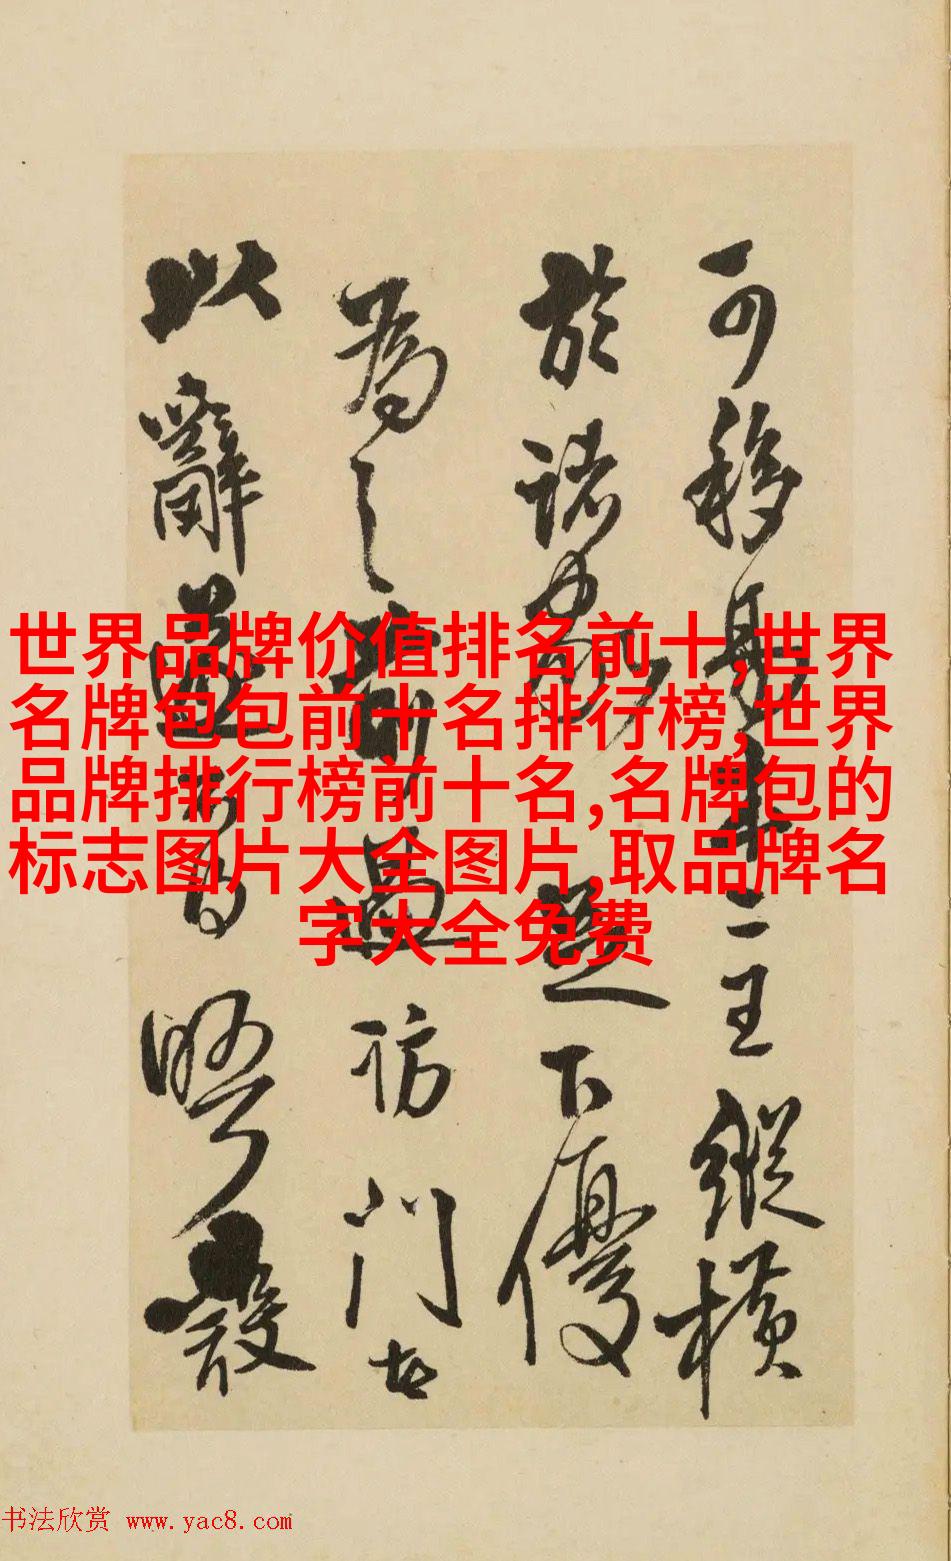 可移具来二王縱橫
於諸家題下優
為之過訪門右
以辭
設
世界品牌价值排名前十,世界
名牌包包前十名排行榜,世界
品牌排行榜前十名,名牌包的
标志图片大全图片,取品牌名
字大全免费
书法欣赏 www.yac8.com